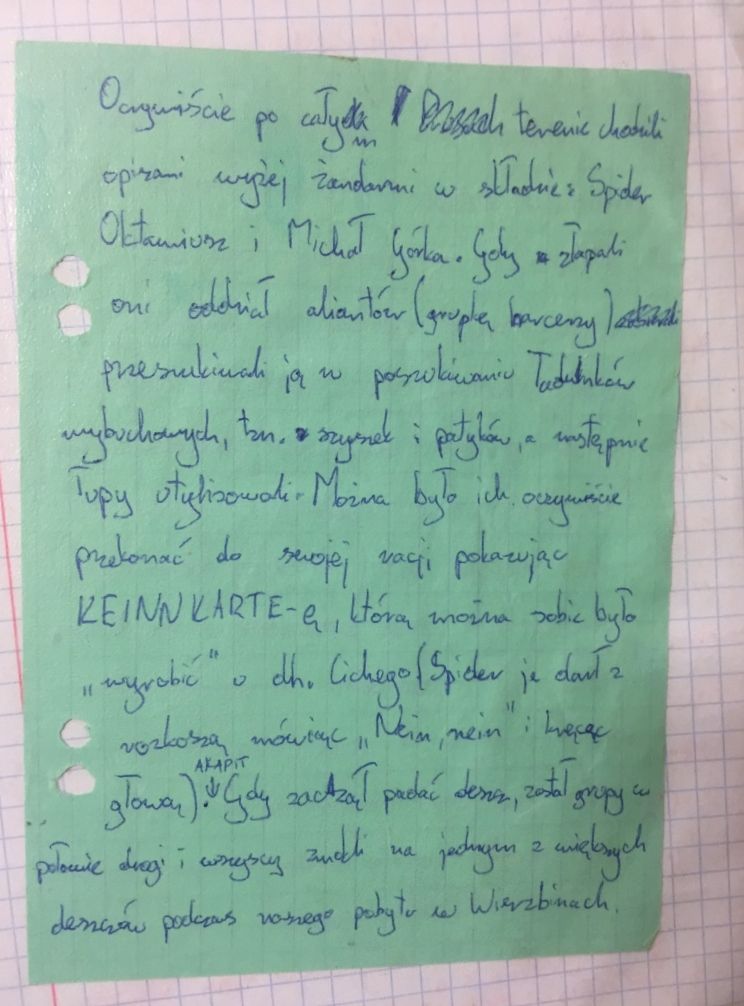 Oczywiście po całym terenie chodzili
opisani wyżej żandarmi w składzie: Spider
Oktawiusz i Michał Górka. Gdy złapali
oni oddział aliantów (grupkę harcerzy)
przeszukiwali ją w poszukiwaniu ładunków
wybuchowych, tzn. szyszek i patyków, a następnie
łupy utylizowali. Można było ich oczywiście
przekonać do swojej racji pokazując
KEINNKARTE-ę, którą można sobie było
„wyrobić" u dh. Cichego (Spider je darł z
rozkoszą mówiąc „Nein, nein" i kręcąc
AKAPIT
głową). Gdy zaczął padać deszcz, został grupy w
połowie drogi i wszyscy zmokli na jednym z większych
deszczów podczas naszego pobytu w Wierzbinach.